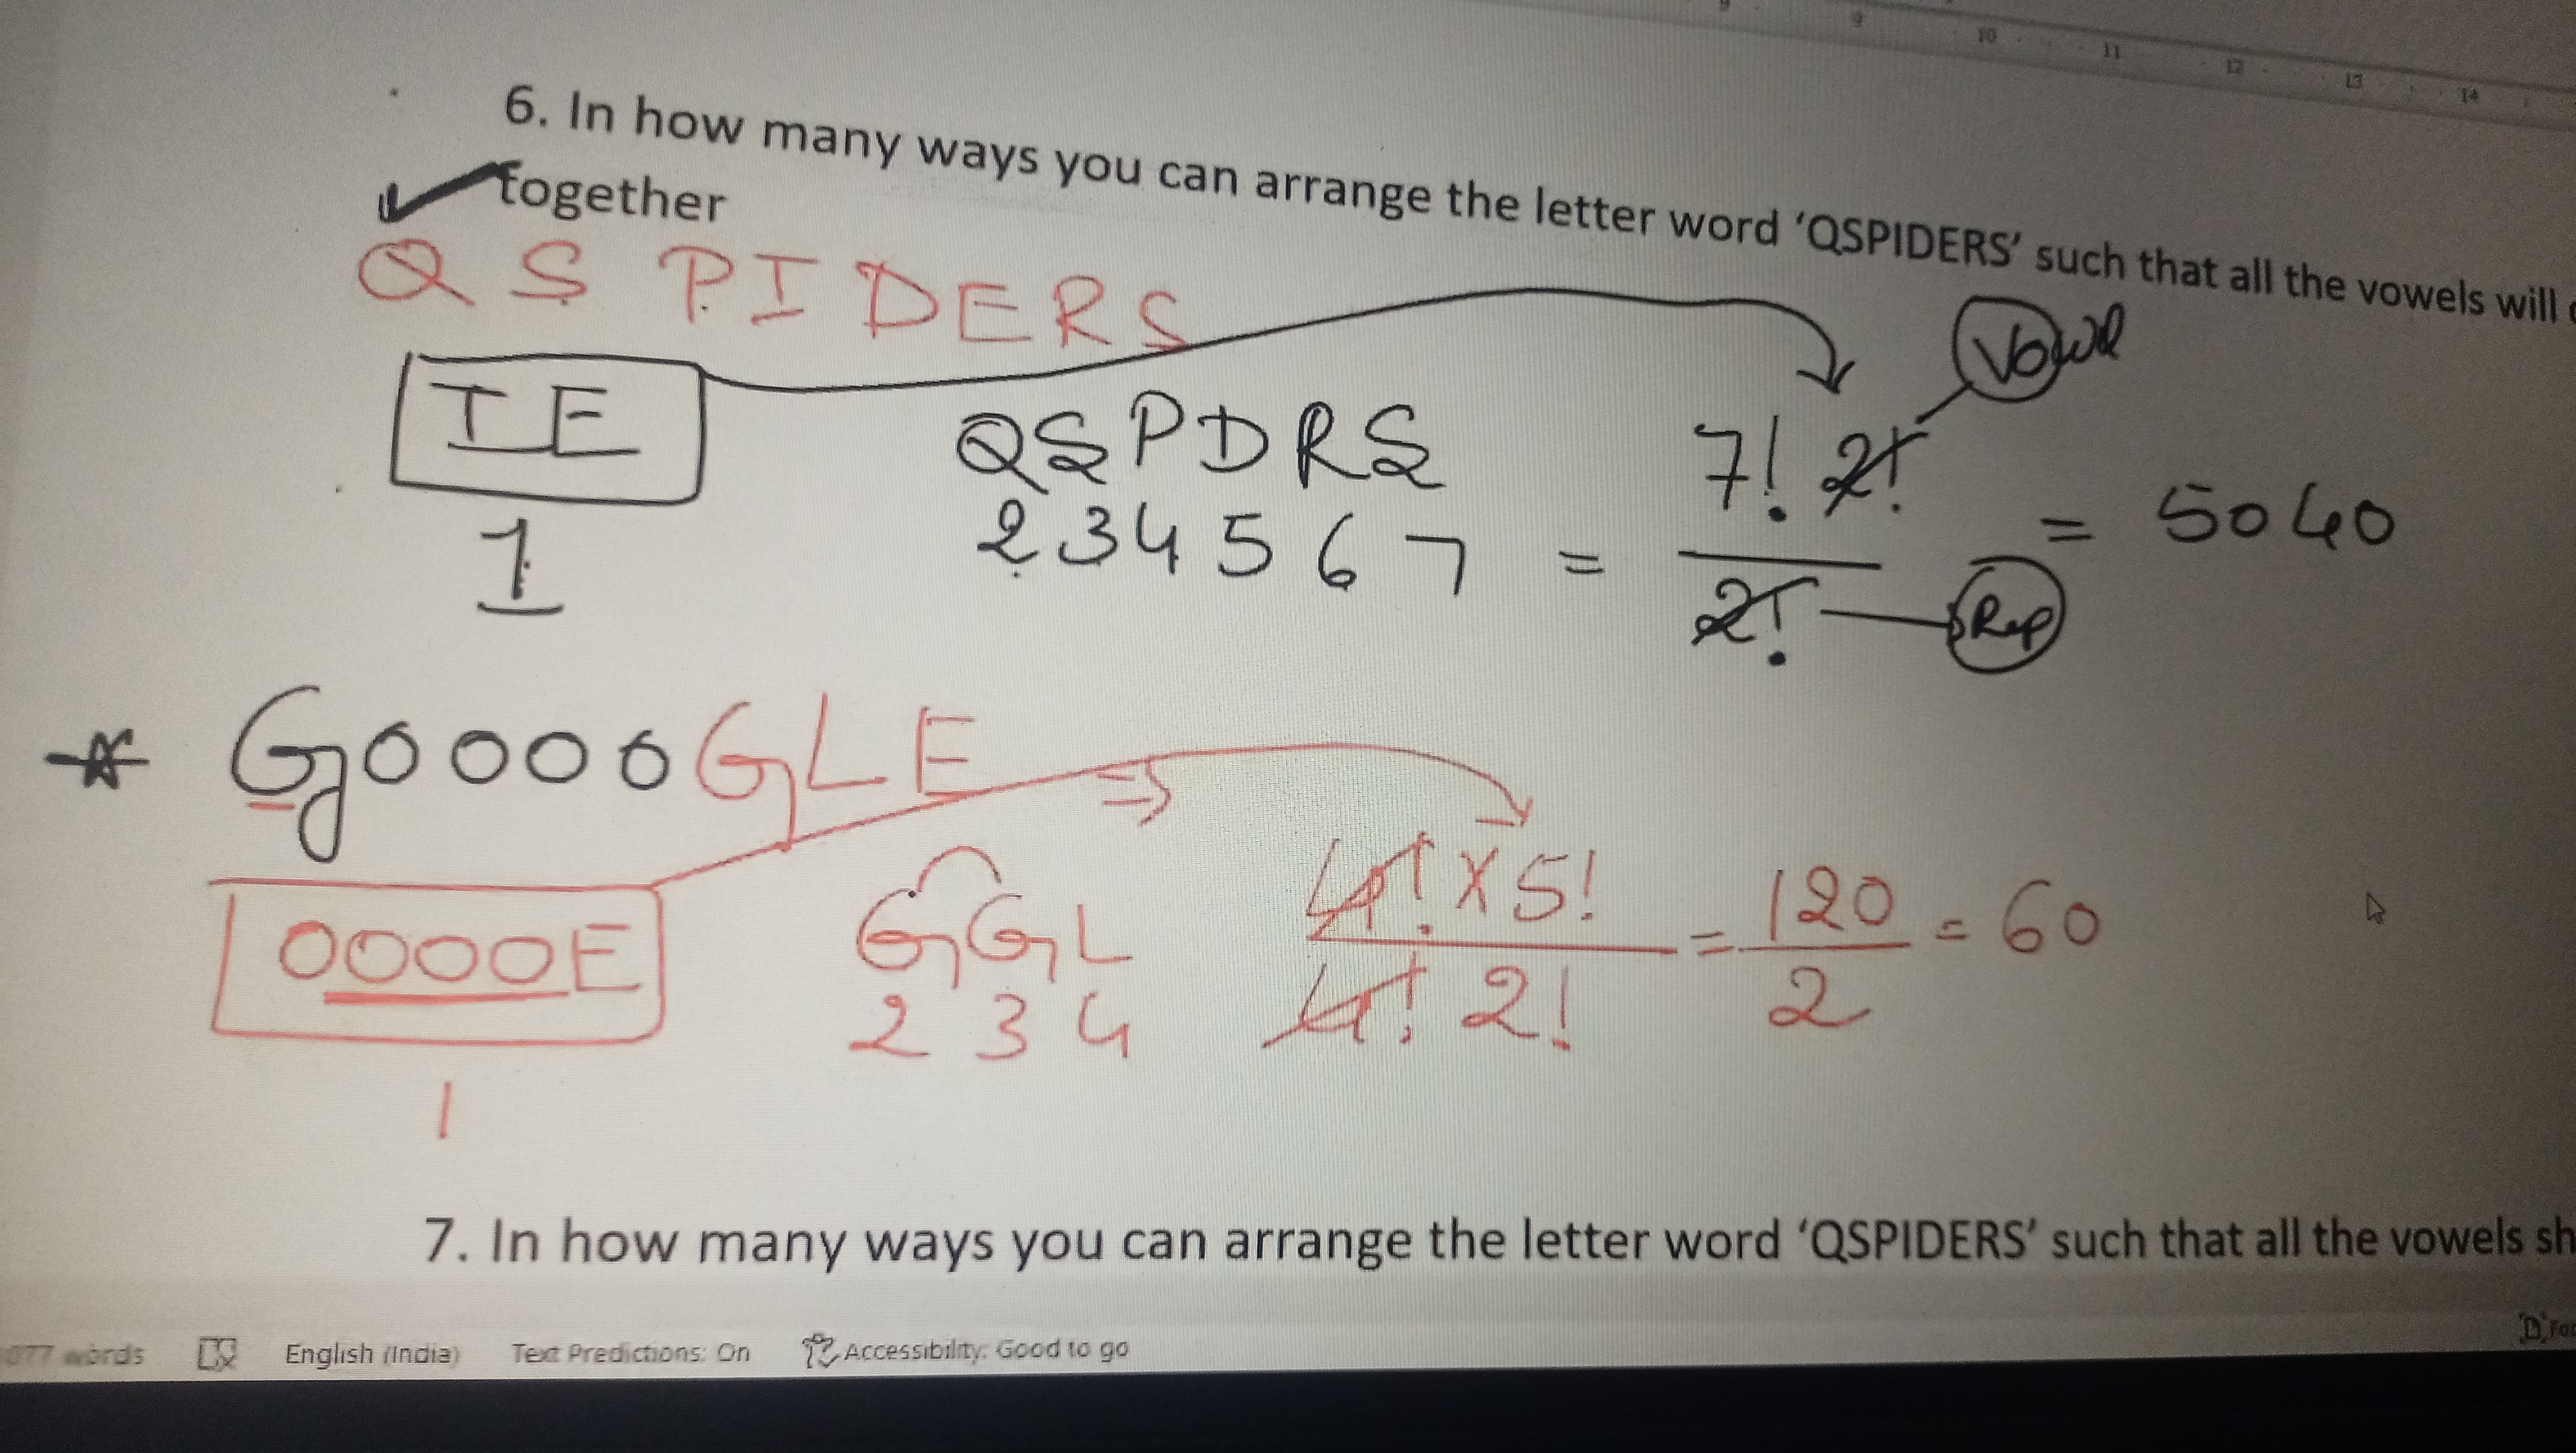 9 10 11 12 13 14
6. In how many ways you can arrange the letter word 'QSPIDERS' such that all the vowels will
together
Q S P I D E R S
I E QSPDRS 7! 2! Vowel
1 2 3 4 5 6 7 = 2! Rep = 5040
GOOOOGLE ⇒
OOOOE GGL 4! × 5! = 120 = 60
1 2 3 4 4! 2! 2
7. In how many ways you can arrange the letter word 'QSPIDERS' such that all the vowels sh
077 words English (India) Text Predictions: On Accessibility: Good to go